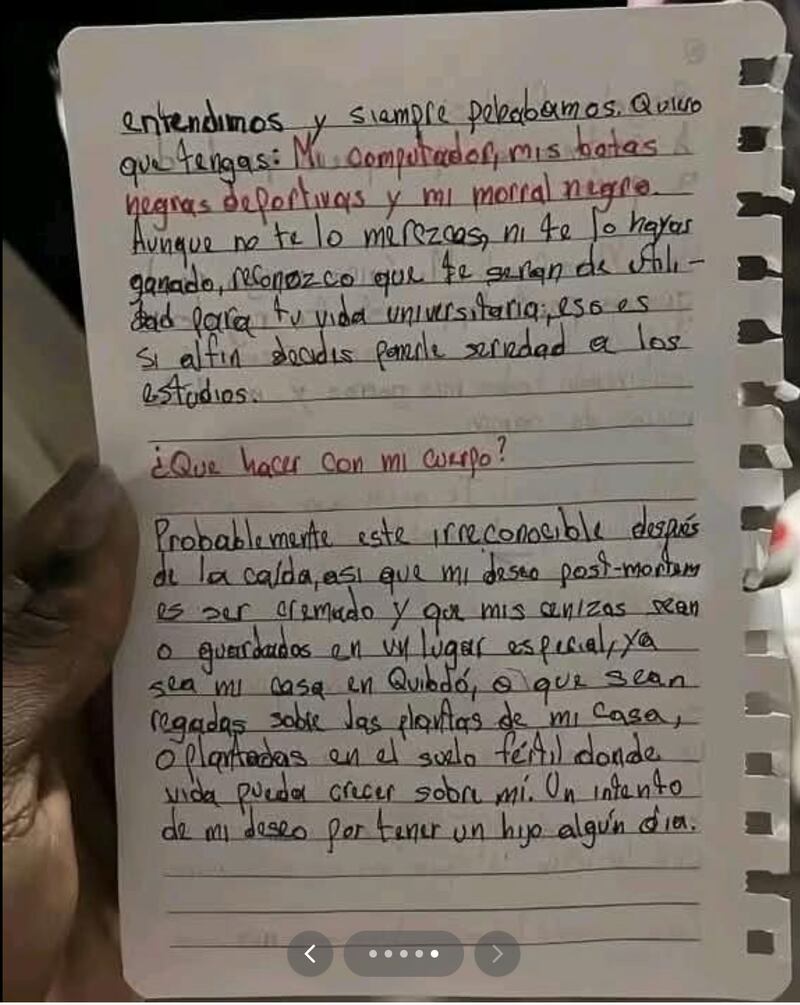 entendimos y siempre peleabamos. Quiero
que tengas: Mi computador, mis botas
negras deportivas y mi morral negro.
Aunque no te lo merezcas, ni te lo hayas
ganado, reconozco que te seran de utili-
dad para tu vida universitaria; eso es
si alfin decidis ponerle seriedad a los
estudios.
¿Que hacer con mi cuerpo?
Probablemente este irreconocible después
de la caida, asi que mi deseo post-mortem
es ser cremado y que mis cenizas sean
o guardadas en un lugar especial, ya
sea mi casa en Quibdó, o que sean
regadas sobre las plantas de mi casa,
o plantadas en el suelo fértil donde
vida pueda crecer sobre mí. Un intento
de mi deseo por tener un hijo algún día.